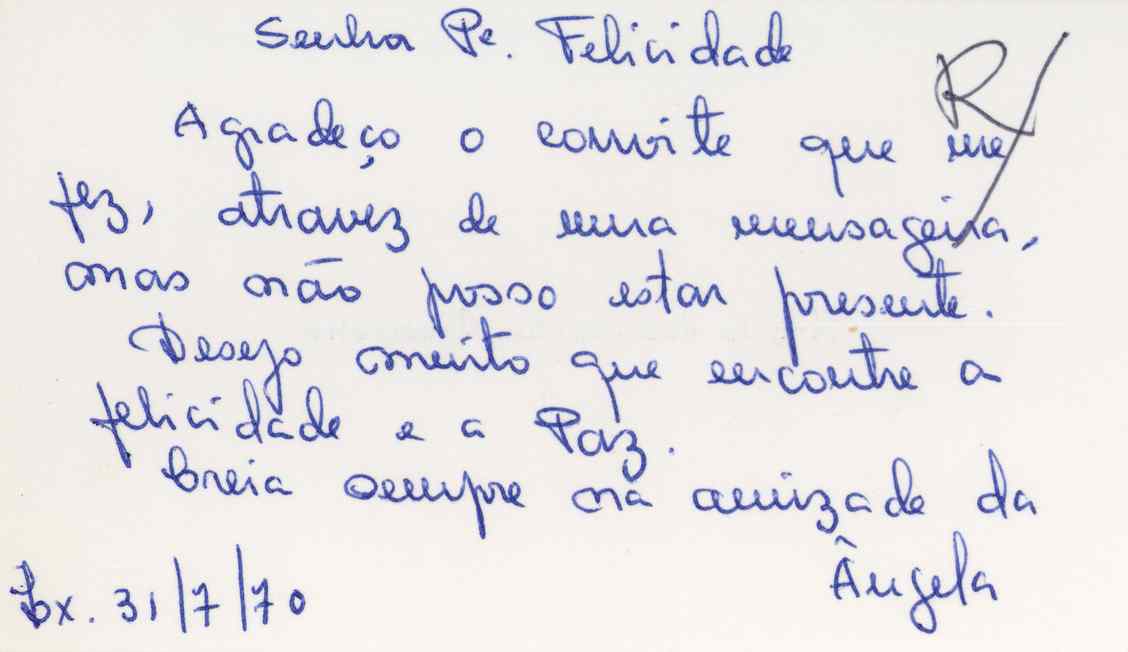 Senhor Pe. Felicidade
R/
Agradeço o convite que me
fez, atravez de uma mensageira,
mas não posso estar presente.
Desejo muito que encontre a
felicidade e a Paz.
Creia sempre na amizade da
Ângela
Lx. 31/7/70